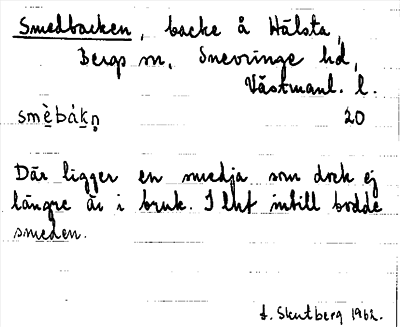 Smedbacken, backe å Hälsta,
Bergs sn, Snevringe hd,
Västmanl. l.
smὲ̀bákn̥ 20
Där ligger en smedja som dock ej
längre är i bruk. I hus intill bodde
smeden.
Skutberg 1962.